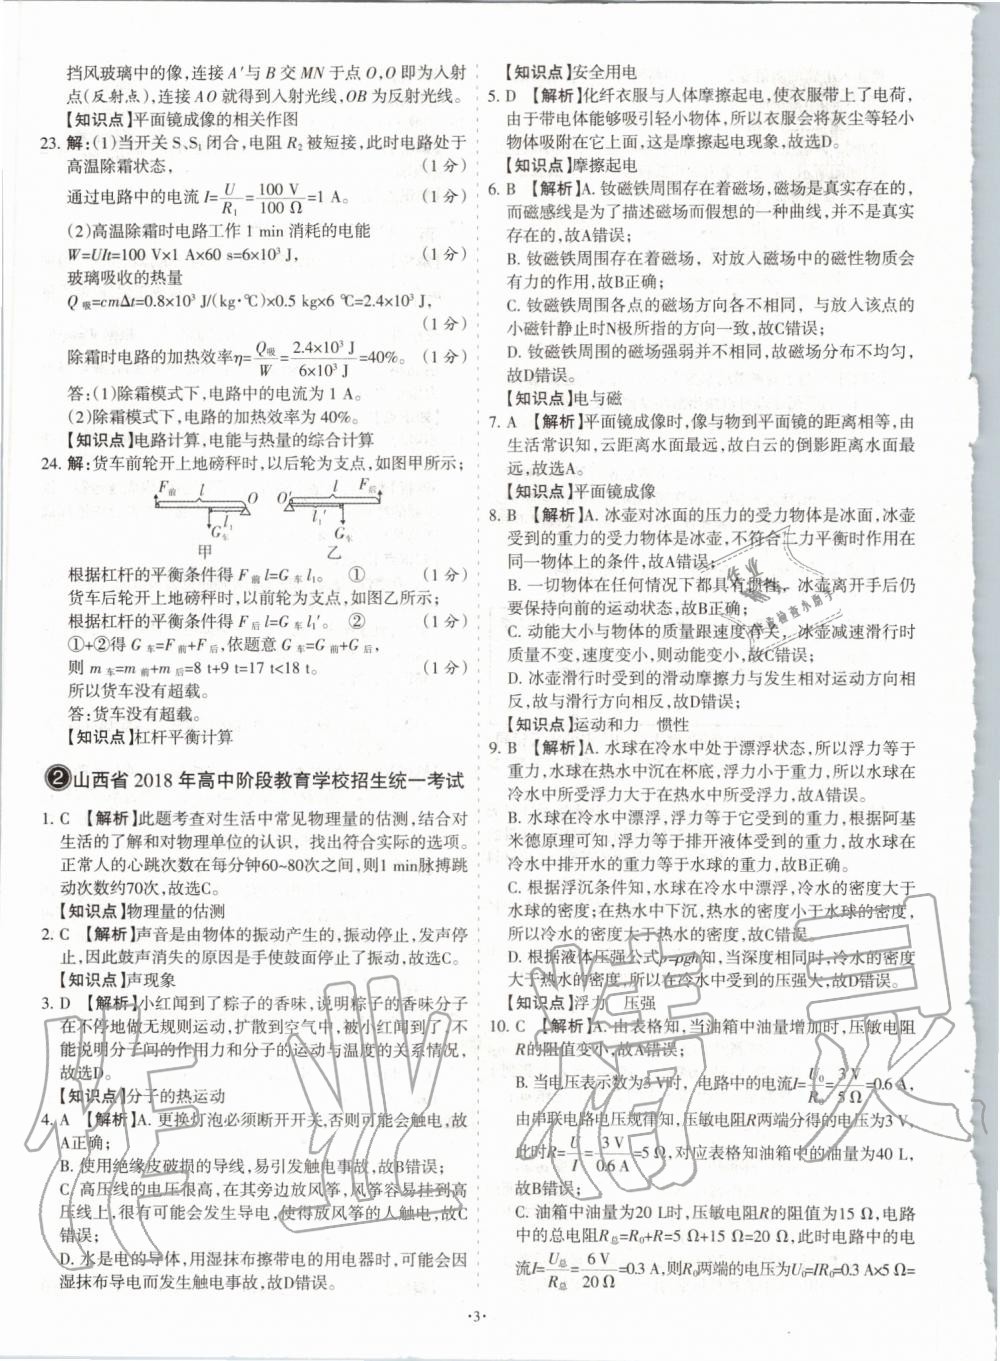 挡风玻璃中的像,连接 A′与 B 交 MN 于点 O,O 即为入射
点(反射点),连接 AO 就得到入射光线,OB 为反射光线。
【知识点】平面镜成像的相关作图
23. 解:(1)当开关 S、S₁ 闭合,电阻 R₂ 被短接,此时电路处于
高温除霜状态, (1 分)
通过电路中的电流 I=U/R₁=100 V/100 Ω=1 A。 (1 分)
(2)高温除霜时电路工作 1 min 消耗的电能
W=UIt=100 V×1 A×60 s=6×10³ J, (1 分)
玻璃吸收的热量
Q吸=cmΔt=0.8×10³ J/(kg·℃)×0.5 kg×6 ℃=2.4×10³ J,
(1 分)
除霜时电路的加热效率η=Q吸/W=2.4×10³ J/6×10³ J=40%。 (1 分)
答:(1)除霜模式下,电路中的电流为 1 A。
(2)除霜模式下,电路的加热效率为 40%。
【知识点】电路计算,电能与热量的综合计算
24. 解:货车前轮开上地磅秤时,以后轮为支点,如图甲所示;
F前 l O O′ l F后
l₁ l₁′
G车 G车
甲 乙
根据杠杆的平衡条件得 F前l=G车l₁。 ① (1 分)
货车后轮开上地磅秤时,以前轮为支点,如图乙所示;
根据杠杆的平衡条件得 F后l=G车l₁′。 ② (1 分)
①+②得 G车=F前+F后,依题意 G车=G前+G后,
则 m车=m前+m后=8 t+9 t=17 t<18 t。 (1 分)
所以货车没有超载。
答:货车没有超载。
【知识点】杠杆平衡计算
2 山西省 2018 年高中阶段教育学校招生统一考试
1. C 【解析】此题考查对生活中常见物理量的估测,结合对
生活的了解和对物理单位的认识，找出符合实际的选项。
正常人的心跳次数在每分钟60~80次之间,则1 min脉搏跳
动次数约70次,故选C。
【知识点】物理量的估测
2. C 【解析】声音是由物体的振动产生的,振动停止,发声停
止,因此鼓声消失的原因是手使鼓面停止了振动,故选C。
【知识点】声现象
3. D 【解析】小红闻到了粽子的香味,说明粽子的香味分子
在不停地做无规则运动,扩散到空气中,被小红闻到了,不
能说明分子间的作用力和分子的运动与温度的关系情况,
故选D。
【知识点】分子的热运动
4. A 【解析】A. 更换灯泡必须断开开关,否则可能会触电,故
A正确;
B. 使用绝缘皮破损的导线,易引发触电事故,故B错误;
C. 高压线的电压很高,在其旁边放风筝,风筝容易挂到高
压线上,很有可能会发生导电,使得放风筝的人触电,故C
错误;
D. 水是电的导体,用湿抹布擦带电的用电器时,可能会因
湿抹布导电而发生触电事故,故D错误。
【知识点】安全用电
5. D 【解析】化纤衣服与人体摩擦起电,使衣服带上了电荷,
由于带电体能够吸引轻小物体,所以衣服会将灰尘等轻小
物体吸附在它上面,这是摩擦起电现象,故选D。
【知识点】摩擦起电
6. B 【解析】A. 钕磁铁周围存在着磁场,磁场是真实存在的,
而磁感线是为了描述磁场而假想的一种曲线,并不是真实
存在的,故A错误;
B. 钕磁铁周围存在着磁场，对放入磁场中的磁性物质会
有力的作用,故B正确;
C. 钕磁铁周围各点的磁场方向各不相同，与放入该点的
小磁针静止时N极所指的方向一致,故C错误;
D. 钕磁铁周围的磁场强弱并不相同，故磁场分布不均匀,
故D错误。
【知识点】电与磁
7. A 【解析】平面镜成像时,像与物到平面镜的距离相等,由
生活常识知,云距离水面最远,故白云的倒影距离水面最
远,故选A。
【知识点】平面镜成像
8. B 【解析】A. 冰壶对冰面的压力的受力物体是冰面,冰壶
受到的重力的受力物体是冰壶,不符合二力平衡时作用在
同一物体上的条件,故A错误;
B. 一切物体在任何情况下都具有惯性，冰壶离开手后仍
要保持向前的运动状态,故B正确;
C. 动能大小与物体的质量跟速度有关，冰壶减速滑行时
质量不变,速度变小,则动能变小,故C错误;
D. 冰壶滑行时受到的滑动摩擦力与发生相对运动方向相
反,故与滑行方向相反,故D错误;
【知识点】运动和力 惯性
9. B 【解析】A. 水球在冷水中处于漂浮状态,所以受到了浮
力,水球在热水中沉在杯底,浮力小于重力,但是受浮力,
所以水球在冷水中受浮力,在热水中也受浮力,故A错误。
B. 水球在冷水中漂浮,浮力等于它受到的重力,根据阿基
米德原理可知,浮力等于排开液体受到的重力,故水球在
冷水中排开水的重力等于水球的重力,故B正确。
C. 根据浮沉条件知,水球在冷水中漂浮,冷水的密度大于
水球的密度;在热水中下沉,热水的密度小于水球的密度,
所以冷水的密度大于热水的密度,故C错误。
D. 根据液体压强公式p=ρgh知,当深度相同时,冷水的密度
大于热水的密度,所以在冷水中受到的压强大,故D错误。
【知识点】浮力 压强
10. C 【解析】A. 由表格知,当油箱中油量增加时,压敏电阻
R的阻值变小,故A错误;
B. 当电压表示数为3 V时，电路中的电流I=U₀/R₀=3 V/5 Ω=0.6 A,
由串联电路电压规律知,压敏电阻R两端分得的电压为3 V,
此时R=U/I=3 V/0.6 A=5 Ω,对应表格知油箱中的油量为40 L,
故B错误;
C. 油箱中油量为20 L时,压敏电阻R的阻值为15 Ω,电路
中的总电阻R总=R₀+R=5 Ω+15 Ω=20 Ω,此时电路中的电
流I=U总/R总=6 V/20 Ω=0.3 A,则R₀两端的电压为U₀=IR₀=0.3 A×5 Ω=
·3·
作业精灵